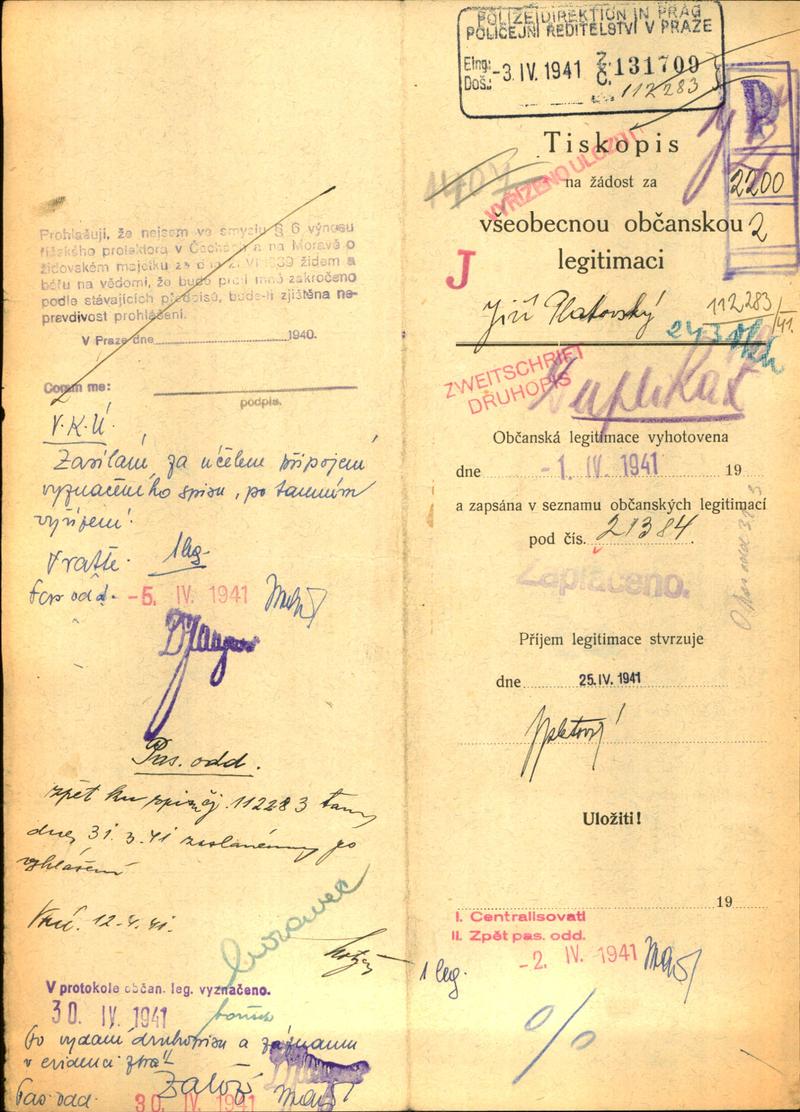 Prohlašuji, že nejsem ve smyslu § 6 výnosu
říšského protektora v Čechách a na Moravě o
židovském majetku ze dne 21. VI. 1939 židem a
béřu na vědomí, že bude proti mně zakročeno
podle stávajících předpisů, bude-li zjištěna ne-
pravdivost prohlášení.
V Praze dne 1940.
Coram me:
podpis.
V.K.Ú.
Zasílám za účelem připojení
vyznačeného spisu, po tamním
vyřízení.
Vraťte. 1 leg.
Pas. odd. -5. IV. 1941
Pas. odd.
zpět ku spisu čj. 112283 tam
dne 31.3.41 zaslanému po
vyhlášení
12.4.41.
V protokole občan. leg. vyznačeno.
30. IV. 1941
Po vydání druhopisu a záznamu
v evidenci ztrát
Založ
Pas. odd. 30. IV. 1941
POLIZEIDIREKTION IN PRAG
POLICEJNÍ ŘEDITELSTVÍ V PRAZE
Eing.: Doš.: -3. IV. 1941 Z. Č. 131709
112283
Tiskopis
na žádost za
VYŘÍZENO ULOŽITI
2200
všeobecnou občanskou 2
legitimaci
J
Jiří Platovský 112283/41.
ZWEITSCHRIFT
DRUHOPIS
Duplikát
Občanská legitimace vyhotovena
dne -1. IV. 1941 19
a zapsána v seznamu občanských legitimací
pod čís. 21384.
Zaplaceno.
Příjem legitimace stvrzuje
dne 25. IV. 1941
Uložiti!
19
I. Centralisovati
II. Zpět pas. odd.
1 leg. -2. IV. 1941